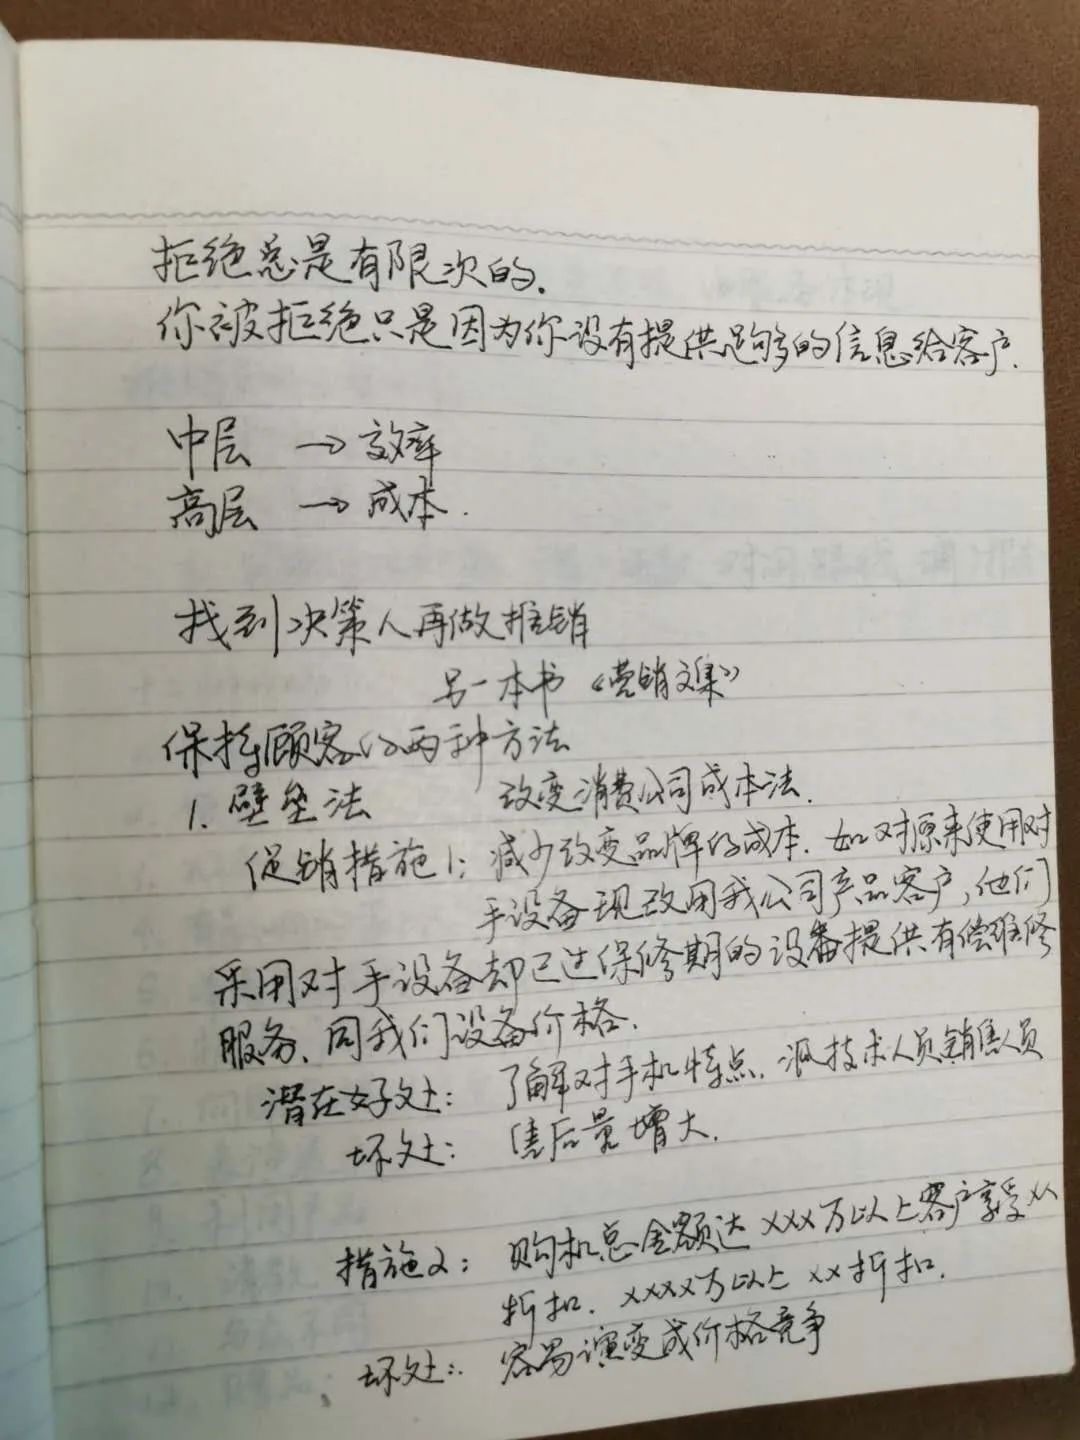 拒绝总是有限次的.
你被拒绝只是因为你没有提供足够的信息给客户.
中层 → 效率
高层 → 成本.
找到决策人再做推销
另一本书《营销文集》
保持顾客的两种方法
1. 壁垒法 改变消费公司成本法.
促销措施1: 减少改变品牌的成本. 如对原来使用对
手设备现改用我公司产品客户,他们
采用对手设备却已过保修期的设备提供有偿维修
服务、同我们设备价格.
潜在好处: 了解对手机特点. 派技术人员销售人员
坏处: 售后量增大.
措施2: 购机总金额达 XXX万以上客户享受XX
折扣. XXXX万以上 XX折扣.
坏处: 容易演变成价格竞争